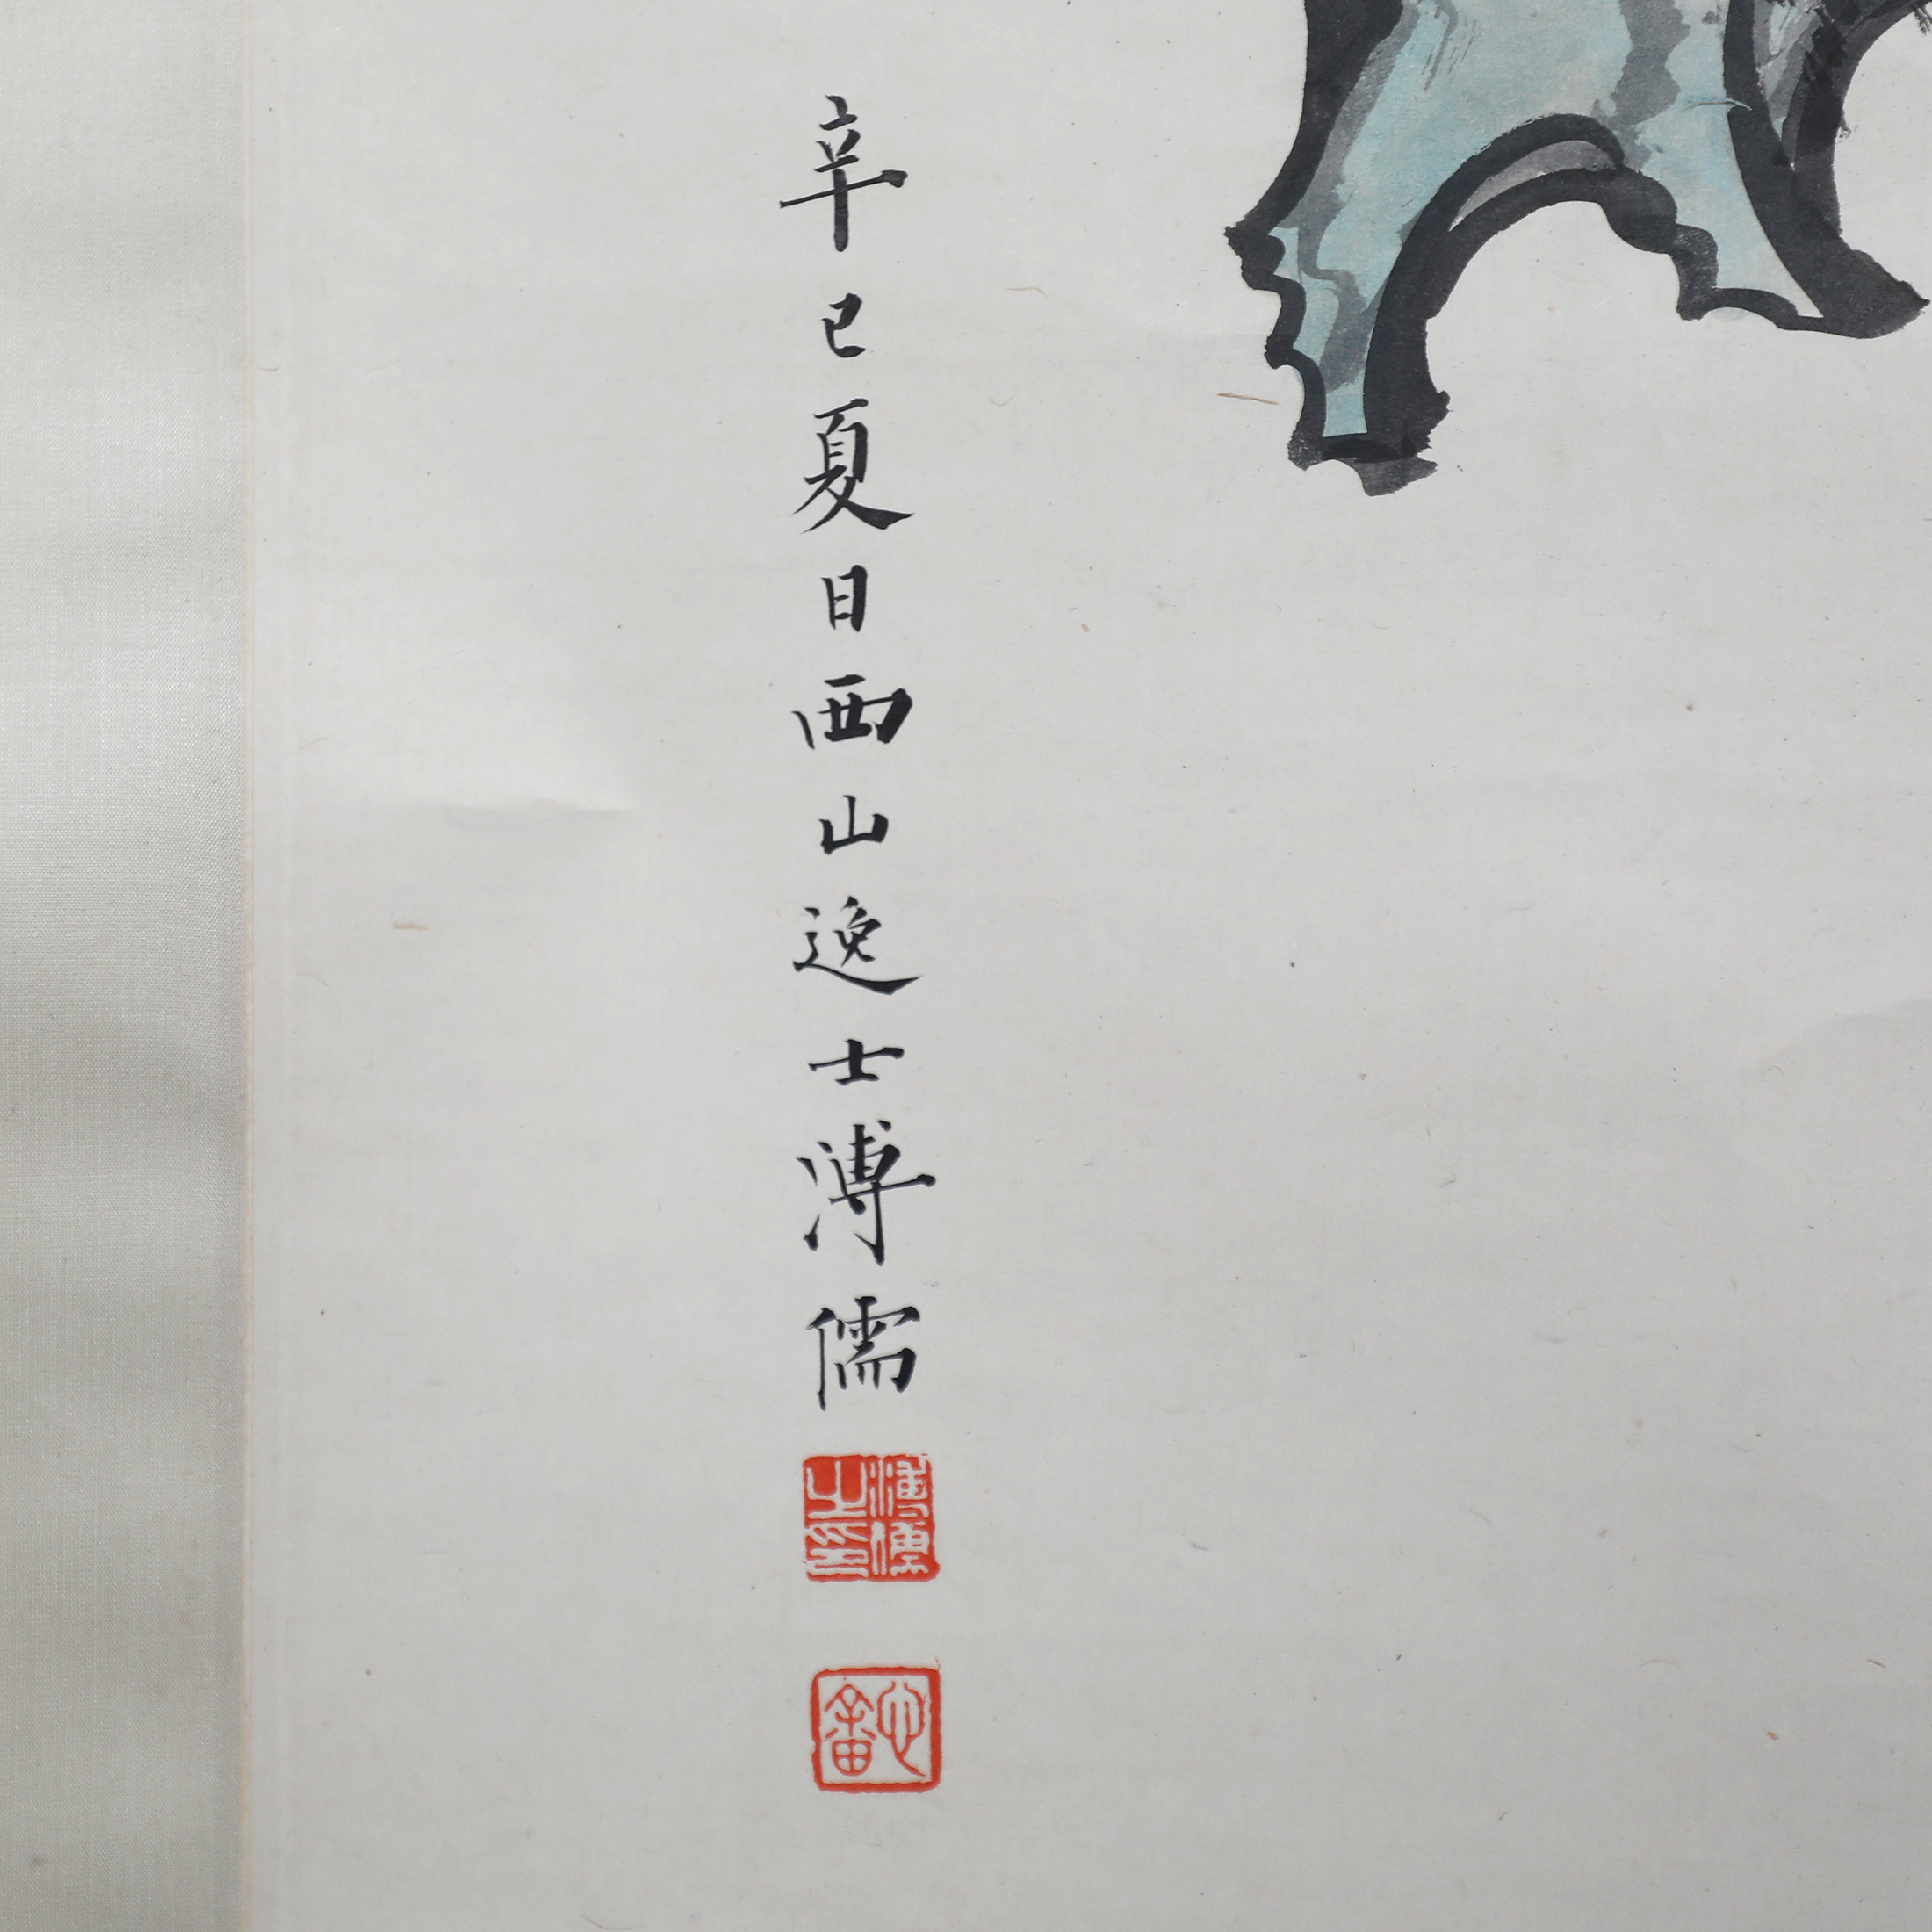 辛巳夏日西山逸士溥儒
溥儒之印
心畬